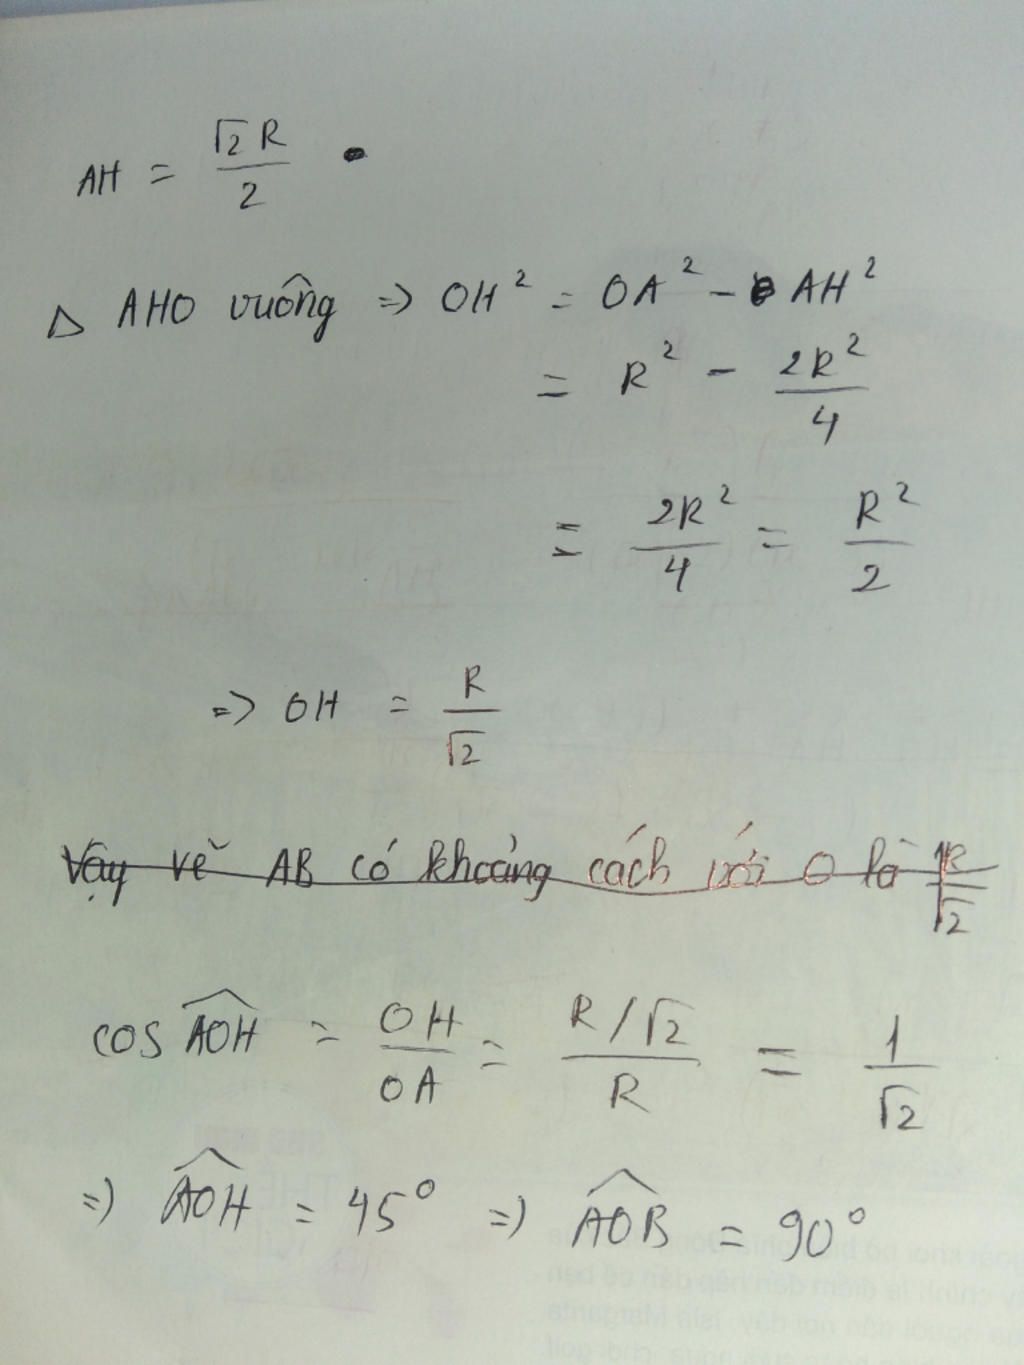 AH = √2 R / 2
Δ AHO vuông => OH² = OA² - AH²
= R² - 2R² / 4
= 2R² / 4 = R² / 2
=> OH = R / √2
Vậy vẽ AB có khoảng cách với O là R / √2
cos AOH = OH / OA = R/√2 / R = 1 / √2
=> AOH = 45° => AOB = 90°